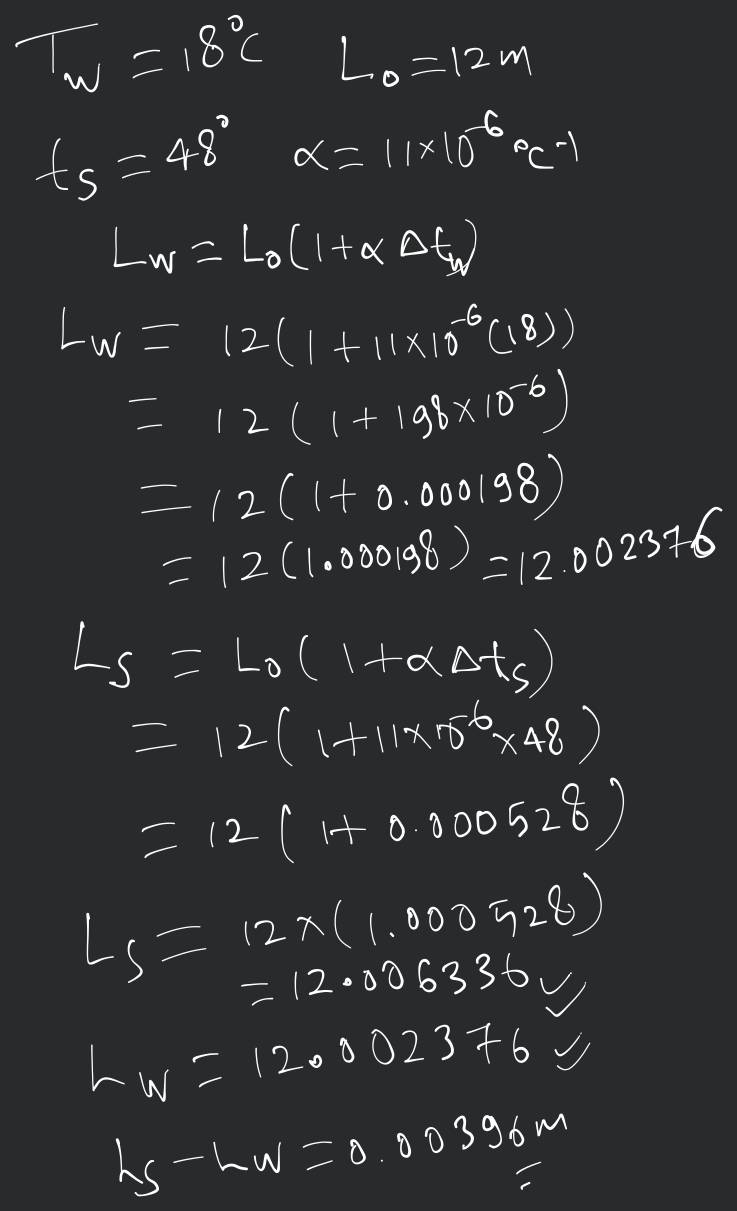 T_w = 18°C L_0 = 12m
t_s = 48° α = 11×10^-6 °C^-1
L_w = L_0(1+α Δt_w)
L_w = 12(1+11×10^-6(18))
= 12(1+198×10^-6)
= 12(1+0.000198)
= 12(1.000198) = 12.002376
L_s = L_0(1+αΔt_s)
= 12(1+11×10^-6×48)
= 12(1+0.000528)
L_s = 12×(1.000528)
= 12.006336 ✓
L_w = 12.002376 ✓
L_s - L_w = 0.00396m